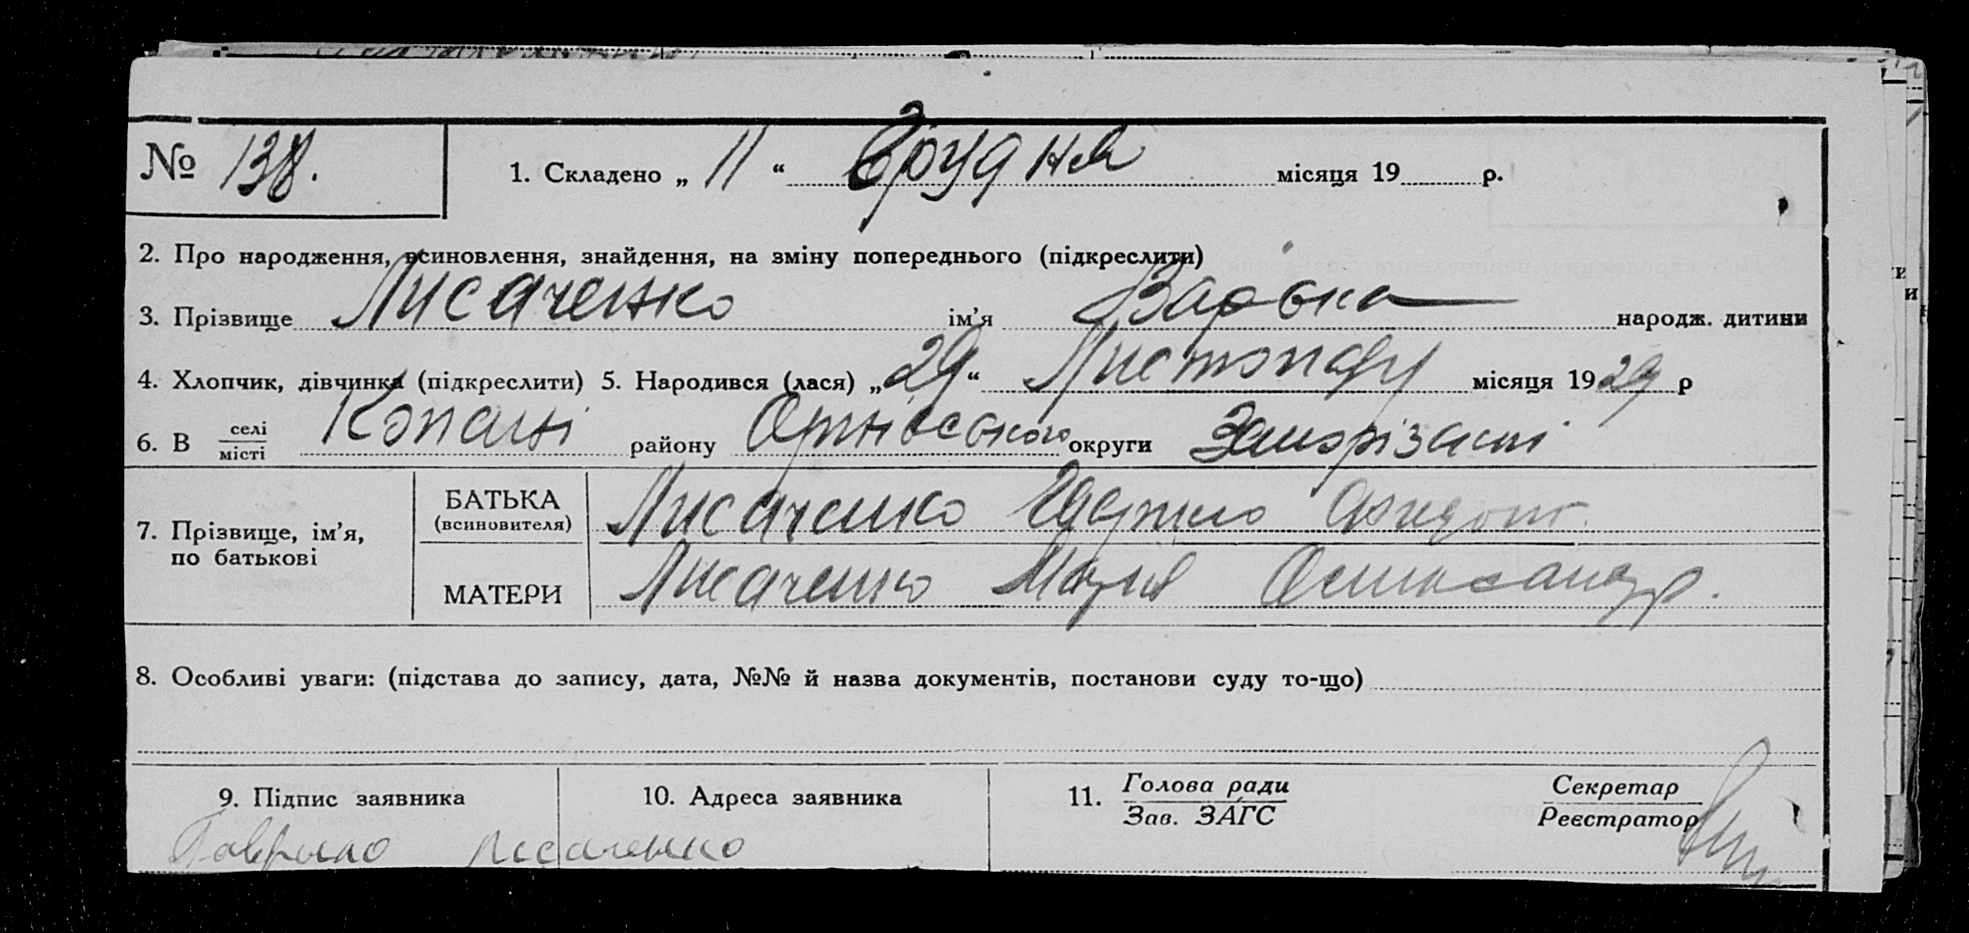 № 138.
1. Складено „ 11 “ Грудня місяця 19 р.
2. Про народження, всиновлення, знайдення, на зміну попереднього (підкреслити)
3. Прізвище Лисаченко ім’я Варька народж. дитини
4. Хлопчик, дівчинка (підкреслити) 5. Народився (лася) „ 29 “ Листопаду місяця 19 29 р
6. В селі місті Копані району округи
7. Прізвище, ім’я, по батькові
БАТЬКА (всиновителя) Лисаченко
МАТЕРИ Лисаченко Мария
8. Особливі уваги: (підстава до запису, дата, №№ й назва документів, постанови суду то-що)
9. Підпис заявника 10. Адреса заявника 11. Голова ради Секретар
Зав. ЗАГС Реєстратор
Гаврило Лисаченко